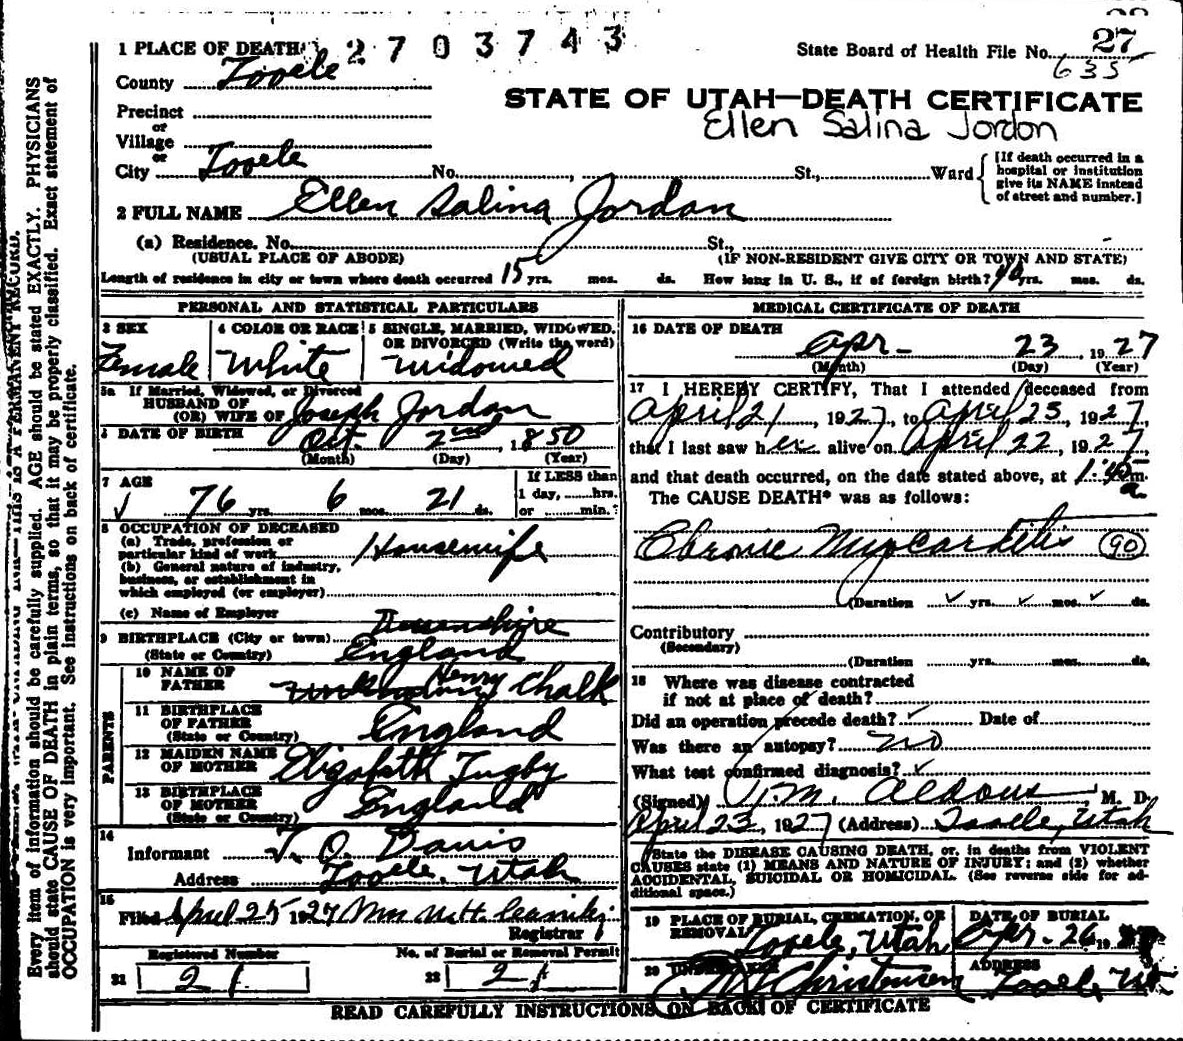 1 PLACE OF DEATH 2 7 0 3 7 4 3
State Board of Health File No. 27
635
County Tooele
STATE OF UTAH—DEATH CERTIFICATE
Ellen Salina Jordon
Precinct
or
Village
or
City Tooele No. , St., Ward
[If death occurred in a
hospital or institution
give its NAME instead
of street and number.]
2 FULL NAME Ellen Salina Jordan
(a) Residence. No. St.,
(USUAL PLACE OF ABODE) (IF NON-RESIDENT GIVE CITY OR TOWN AND STATE)
Length of residence in city or town where death occurred 15 yrs. mos. ds. How long in U. S., if of foreign birth? yrs. mos. ds.
PERSONAL AND STATISTICAL PARTICULARS
3 SEX
Female
4 COLOR OR RACE
White
5 SINGLE, MARRIED, WIDOWED,
OR DIVORCED (Write the word)
Widowed
5a If Married, Widowed, or Divorced
HUSBAND OF
(OR) WIFE OF Joseph Jordan
6 DATE OF BIRTH Oct. 2nd, 1850
(Month) (Day) (Year)
7 AGE
76 yrs. 6 mos. 21 ds.
If LESS than
1 day, hrs.
or min.?
8 OCCUPATION OF DECEASED
(a) Trade, profession or
particular kind of work Housewife
(b) General nature of industry,
business, or establishment in
which employed (or employer)
(c) Name of Employer
9 BIRTHPLACE (City or town)
(State or Country) England
PARENTS
10 NAME OF
FATHER Henry Chalk
11 BIRTHPLACE
OF FATHER
(State or Country) England
12 MAIDEN NAME
OF MOTHER Elizabeth Tugby
13 BIRTHPLACE
OF MOTHER
(State or Country) England
14
Informant J. O. Davis
Address Tooele, Utah
15
Filed April 25 1927 Mrs
Registrar
Registered Number
21 21
No. of Burial or Removal Permit
22 21
MEDICAL CERTIFICATE OF DEATH
16 DATE OF DEATH
Apr- 23, 1927
(Month) (Day) (Year)
17 I HEREBY CERTIFY, That I attended deceased from
April 21, 1927, to April 23, 1927,
that I last saw her alive on April 22, 1927
and that death occurred, on the date stated above, at 1:45 a m.
The CAUSE DEATH* was as follows:
Chronic Myocarditis 90
(Duration yrs. mos. ds.
Contributory
(Secondary)
(Duration yrs. mos. ds.
18 Where was disease contracted
if not at place of death?
Did an operation precede death? Date of
Was there an autopsy? no
What test confirmed diagnosis?
(Signed) M. D.
April 23, 1927 (Address) Tooele, Utah
State the DISEASE CAUSING DEATH, or, in deaths from VIOLENT
CAUSES state (1) MEANS AND NATURE OF INJURY; and (2) whether
ACCIDENTAL, SUICIDAL OR HOMICIDAL. (See reverse side for ad-
ditional space.)
19 PLACE OF BURIAL, CREMATION, OR
REMOVAL Tooele, Utah
DATE OF BURIAL
Apr- 26 19
20 UNDERTAKER
Christensen
ADDRESS
Tooele, Ut
READ CAREFULLY INSTRUCTIONS ON BACK OF CERTIFICATE
Every item of information should be carefully supplied. AGE should be stated EXACTLY. PHYSICIANS
should state CAUSE OF DEATH in plain terms, so that it may be properly classified. Exact statement of
OCCUPATION is very important. See instructions on back of certificate.